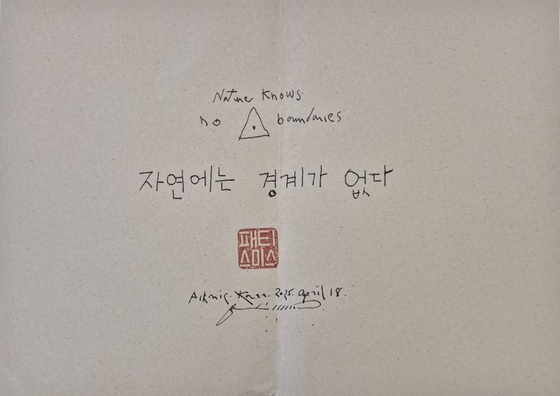 Nature Knows
no boundaries
자연에는 경계가 없다
패티
스미스
Piknic. Korea. 2025. April 18.